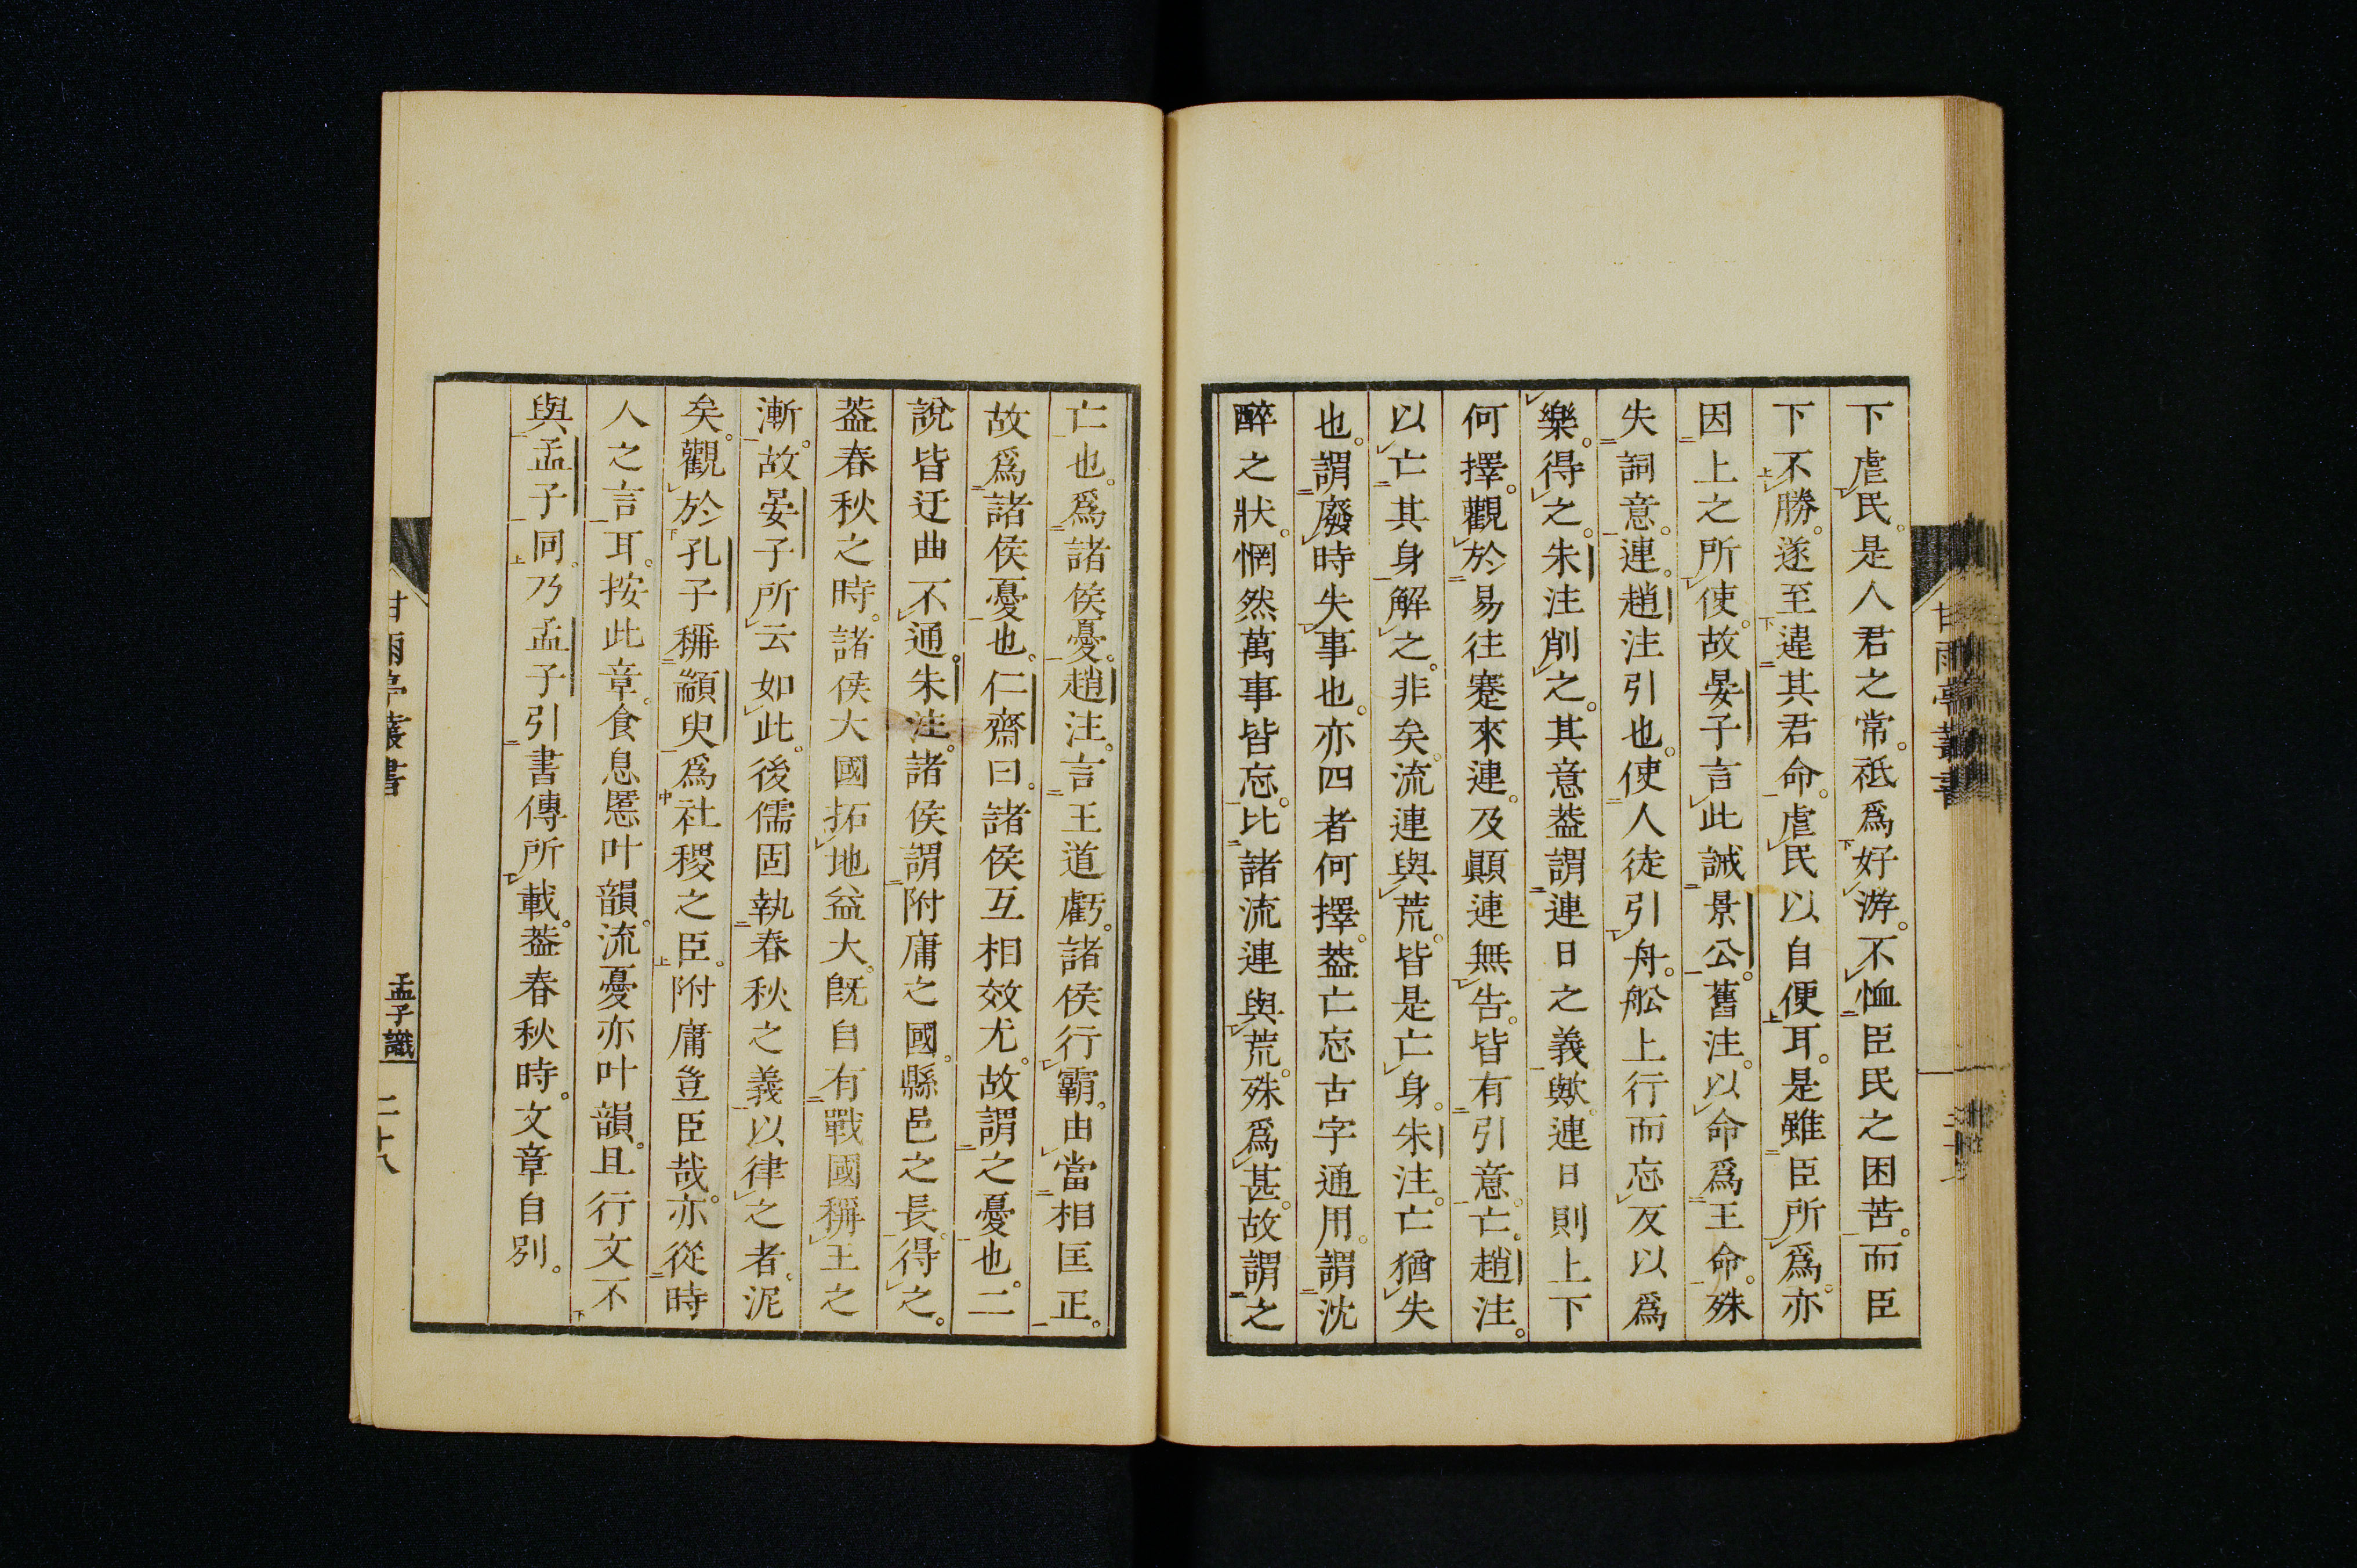 下虐民。是人君之常。祇爲好游。不恤臣民之困苦。而臣
下不勝。遂至違其君命。虐民以自便耳。是雖臣所爲。亦
因上之所使。故晏子言此誡景公。舊注。以命爲王命。殊
失詞意。連。趙注引也。使人徒引舟。舩上行而忘反以爲
樂。得之。朱注削之。其意葢謂連日之義歟。連日則上下
何擇。觀於易往蹇來連。及顚連無告。皆有引意。亡。趙注。
以亡其身解之。非矣。流連與荒。皆是亡身。朱注。亡猶失
也。謂廢時失事也。亦四者何擇。葢亡忘古字通用。謂沈
醉之狀。惘然萬事皆忘。比諸流連與荒。殊爲甚。故謂之
亡也。爲諸侯憂。趙注。言王道虧。諸侯行霸。由當相匡正。
故爲諸侯憂也。仁齋曰。諸侯互相效尤。故謂之憂也。二
說皆迂曲不通。朱注。諸侯謂附庸之國。縣邑之長。得之。
葢春秋之時。諸侯大國拓地益大。旣自有戰國稱王之
漸。故晏子所云如此。後儒固執春秋之義以律之者。泥
矣。觀於孔子稱顓臾爲社稷之臣。附庸豈臣哉。亦從時
人之言耳。按此章。食息慝叶韻。流憂亦叶韻。且行文不
與孟子同。乃孟子引書傳所載。葢春秋時。文章自別。
甘雨亭叢書
孟子識
二十八
甘雨亭叢書